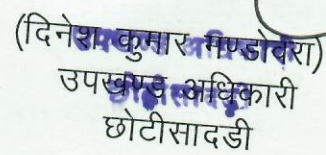 (दिनेश कुमार मण्डोवरा)
उपखण्ड अधिकारी
छोटीसादडी